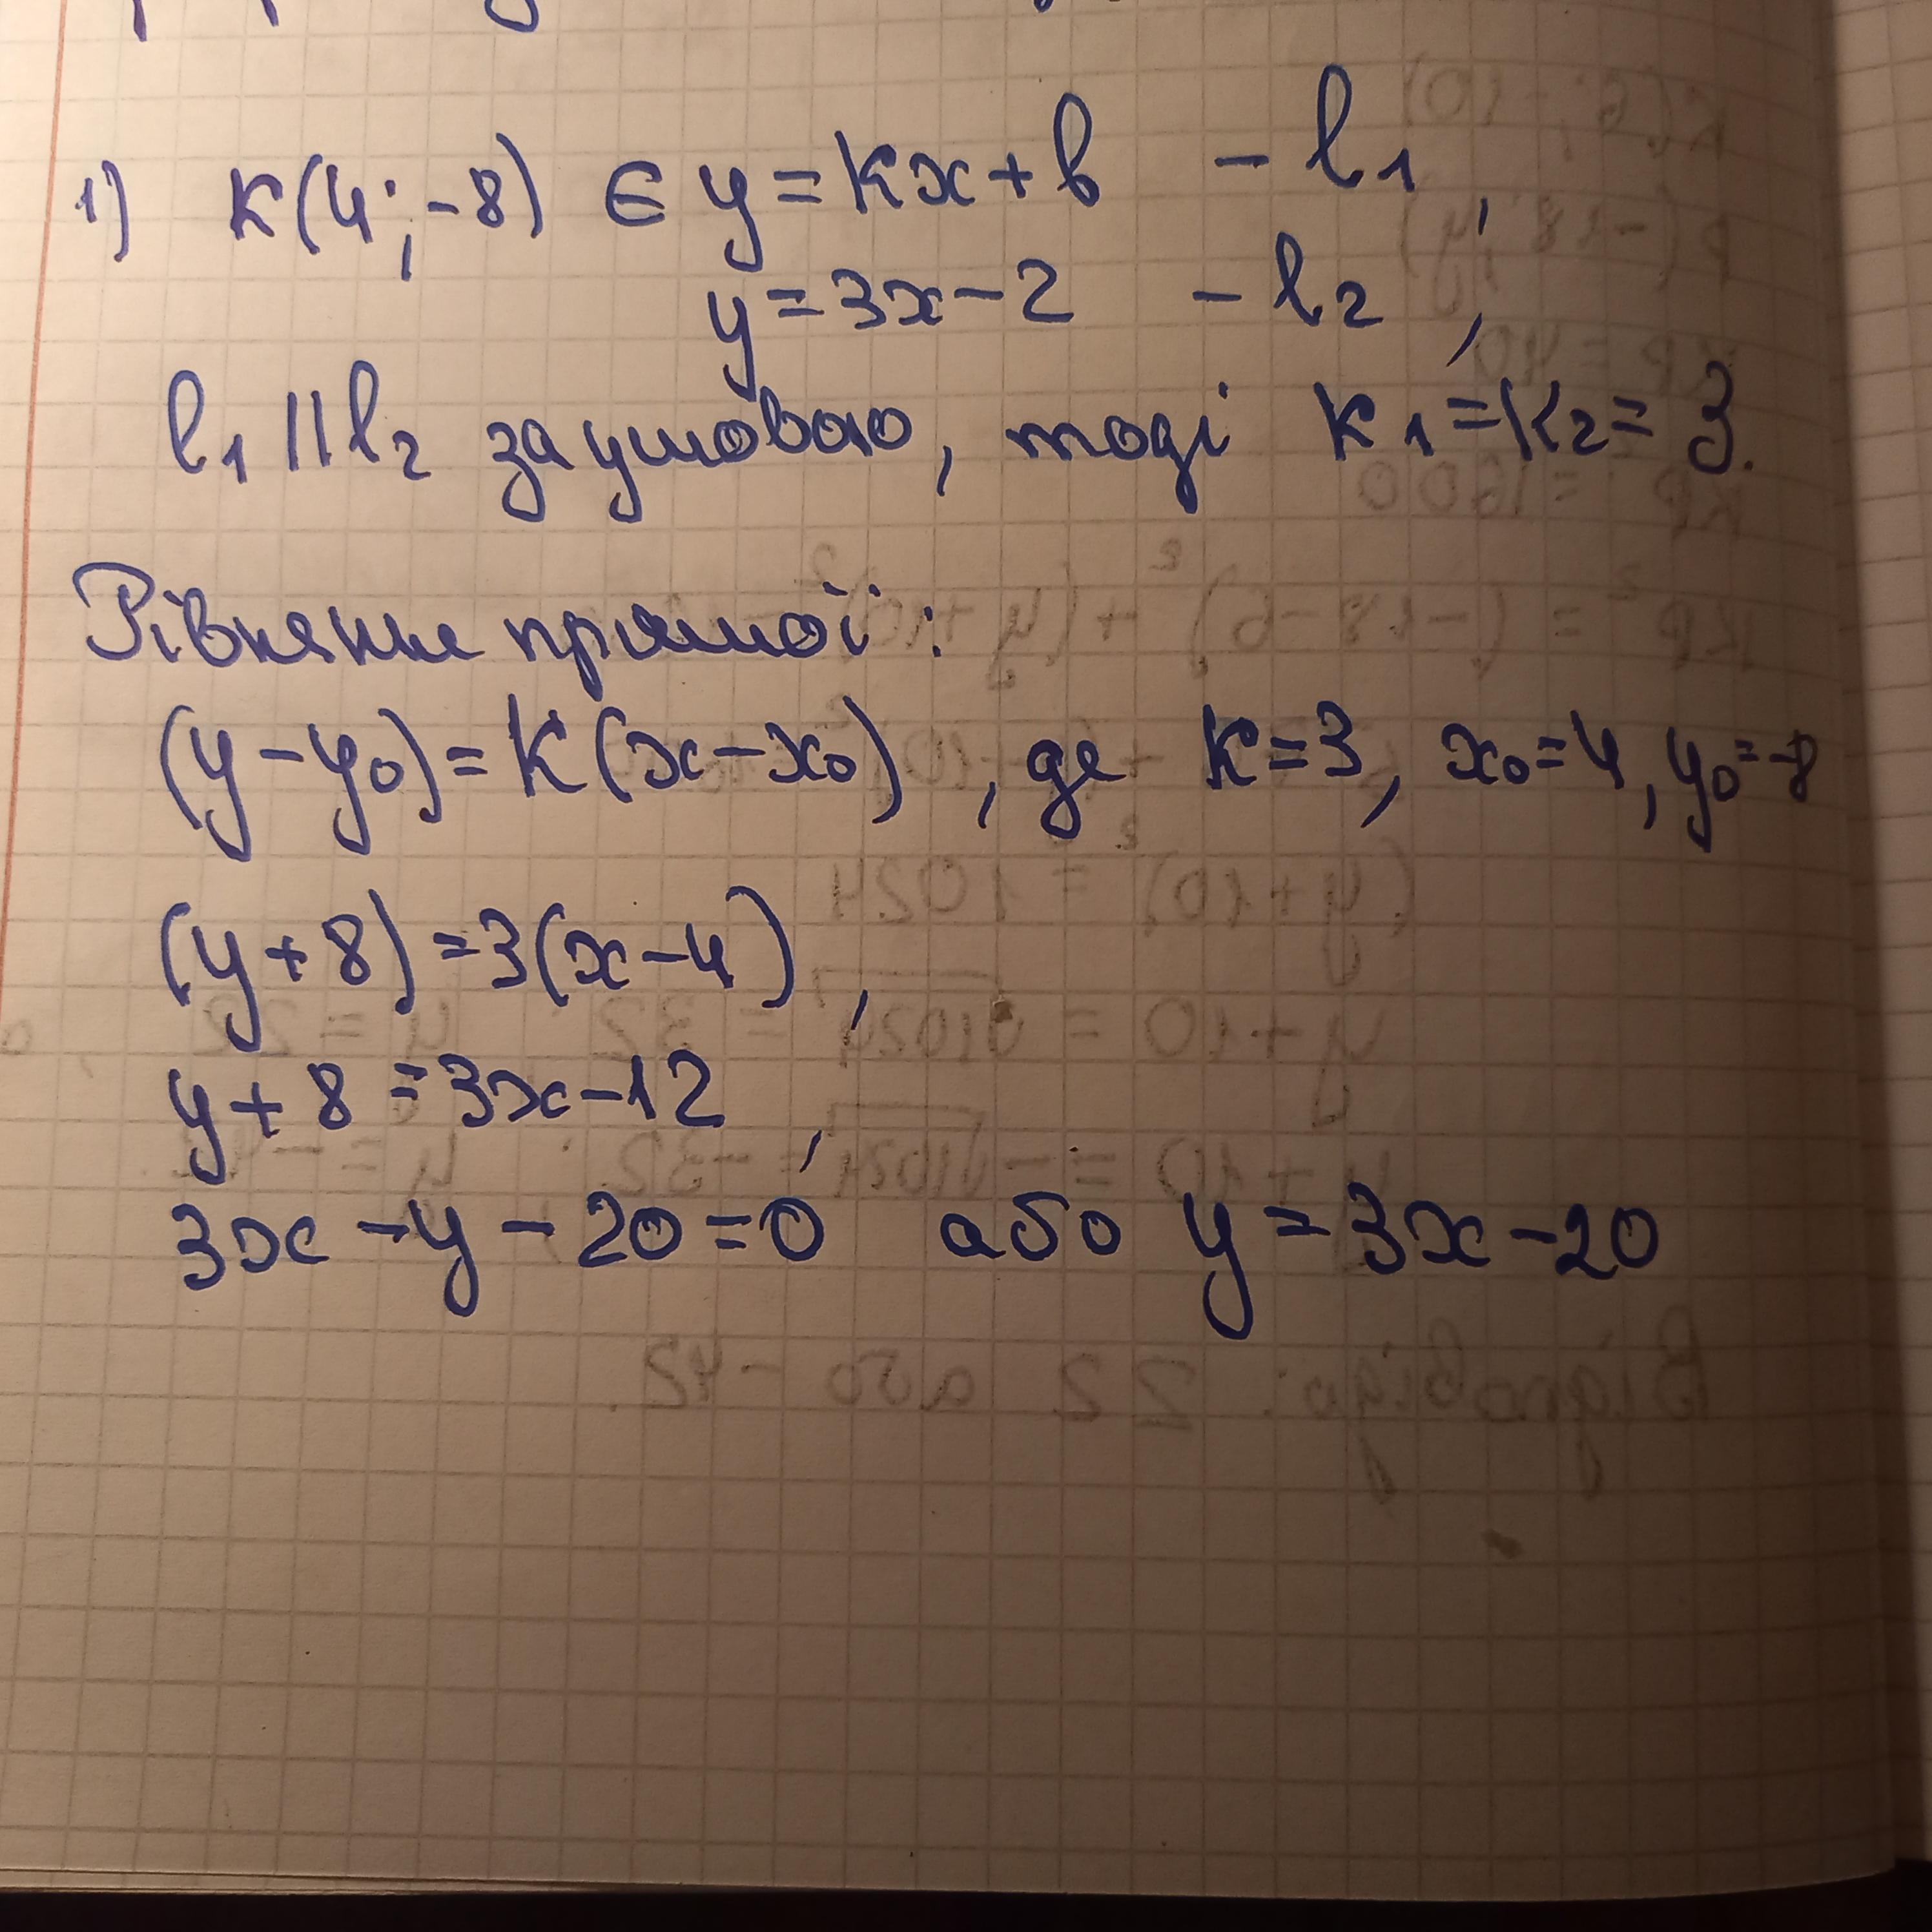 1) K(4;-8) ∈ y=kx+b - l1,
y=3x-2 - l2,
l1 || l2 за умовою, тоді K1=K2=3.
Рівняння прямої:
(y-y0)=K(x-x0), де K=3, x0=4, y0=-8
(y+8)=3(x-4),
y+8=3x-12,
3x-y-20=0 або y=3x-20